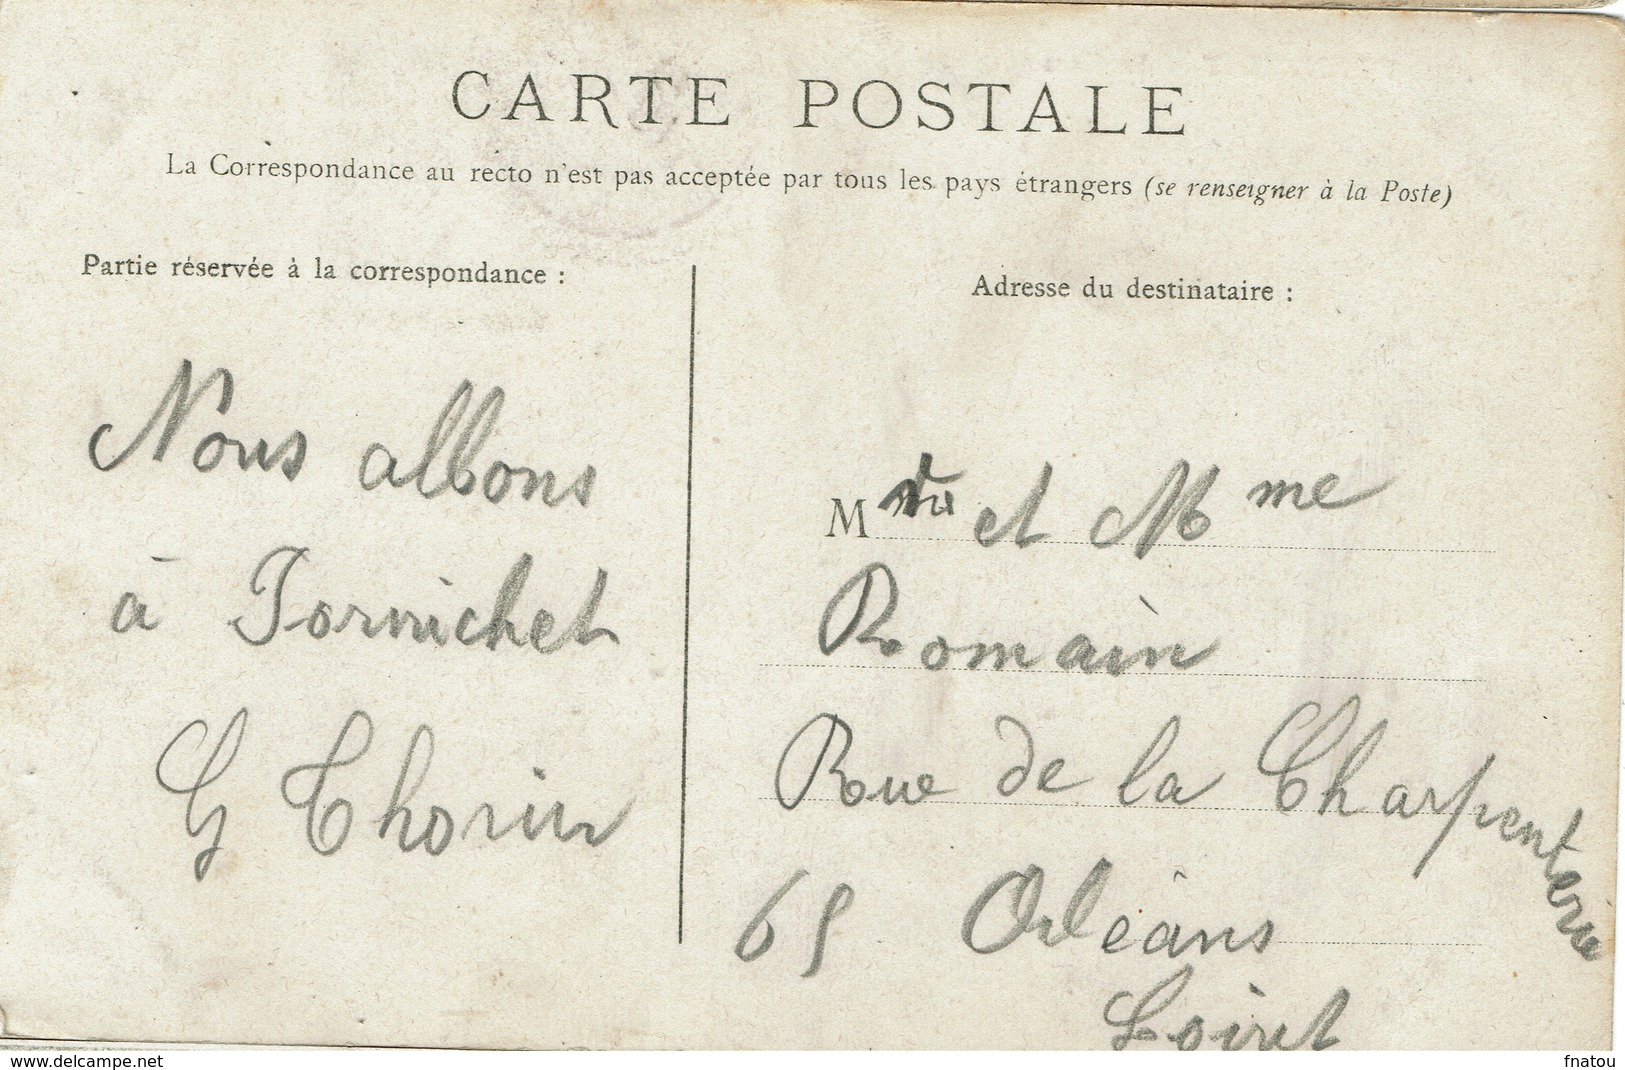 CARTE POSTALE
La Correspondance au recto n'est pas acceptée par tous les pays étrangers (se renseigner à la Poste)
Partie réservée à la correspondance :
Nous allons
à Pornichet
G Thorin
Adresse du destinataire :
M et Mme
Romain
Rue de la Charpenterie
65 Orléans
Loiret
www.delcampe.net
fnatou